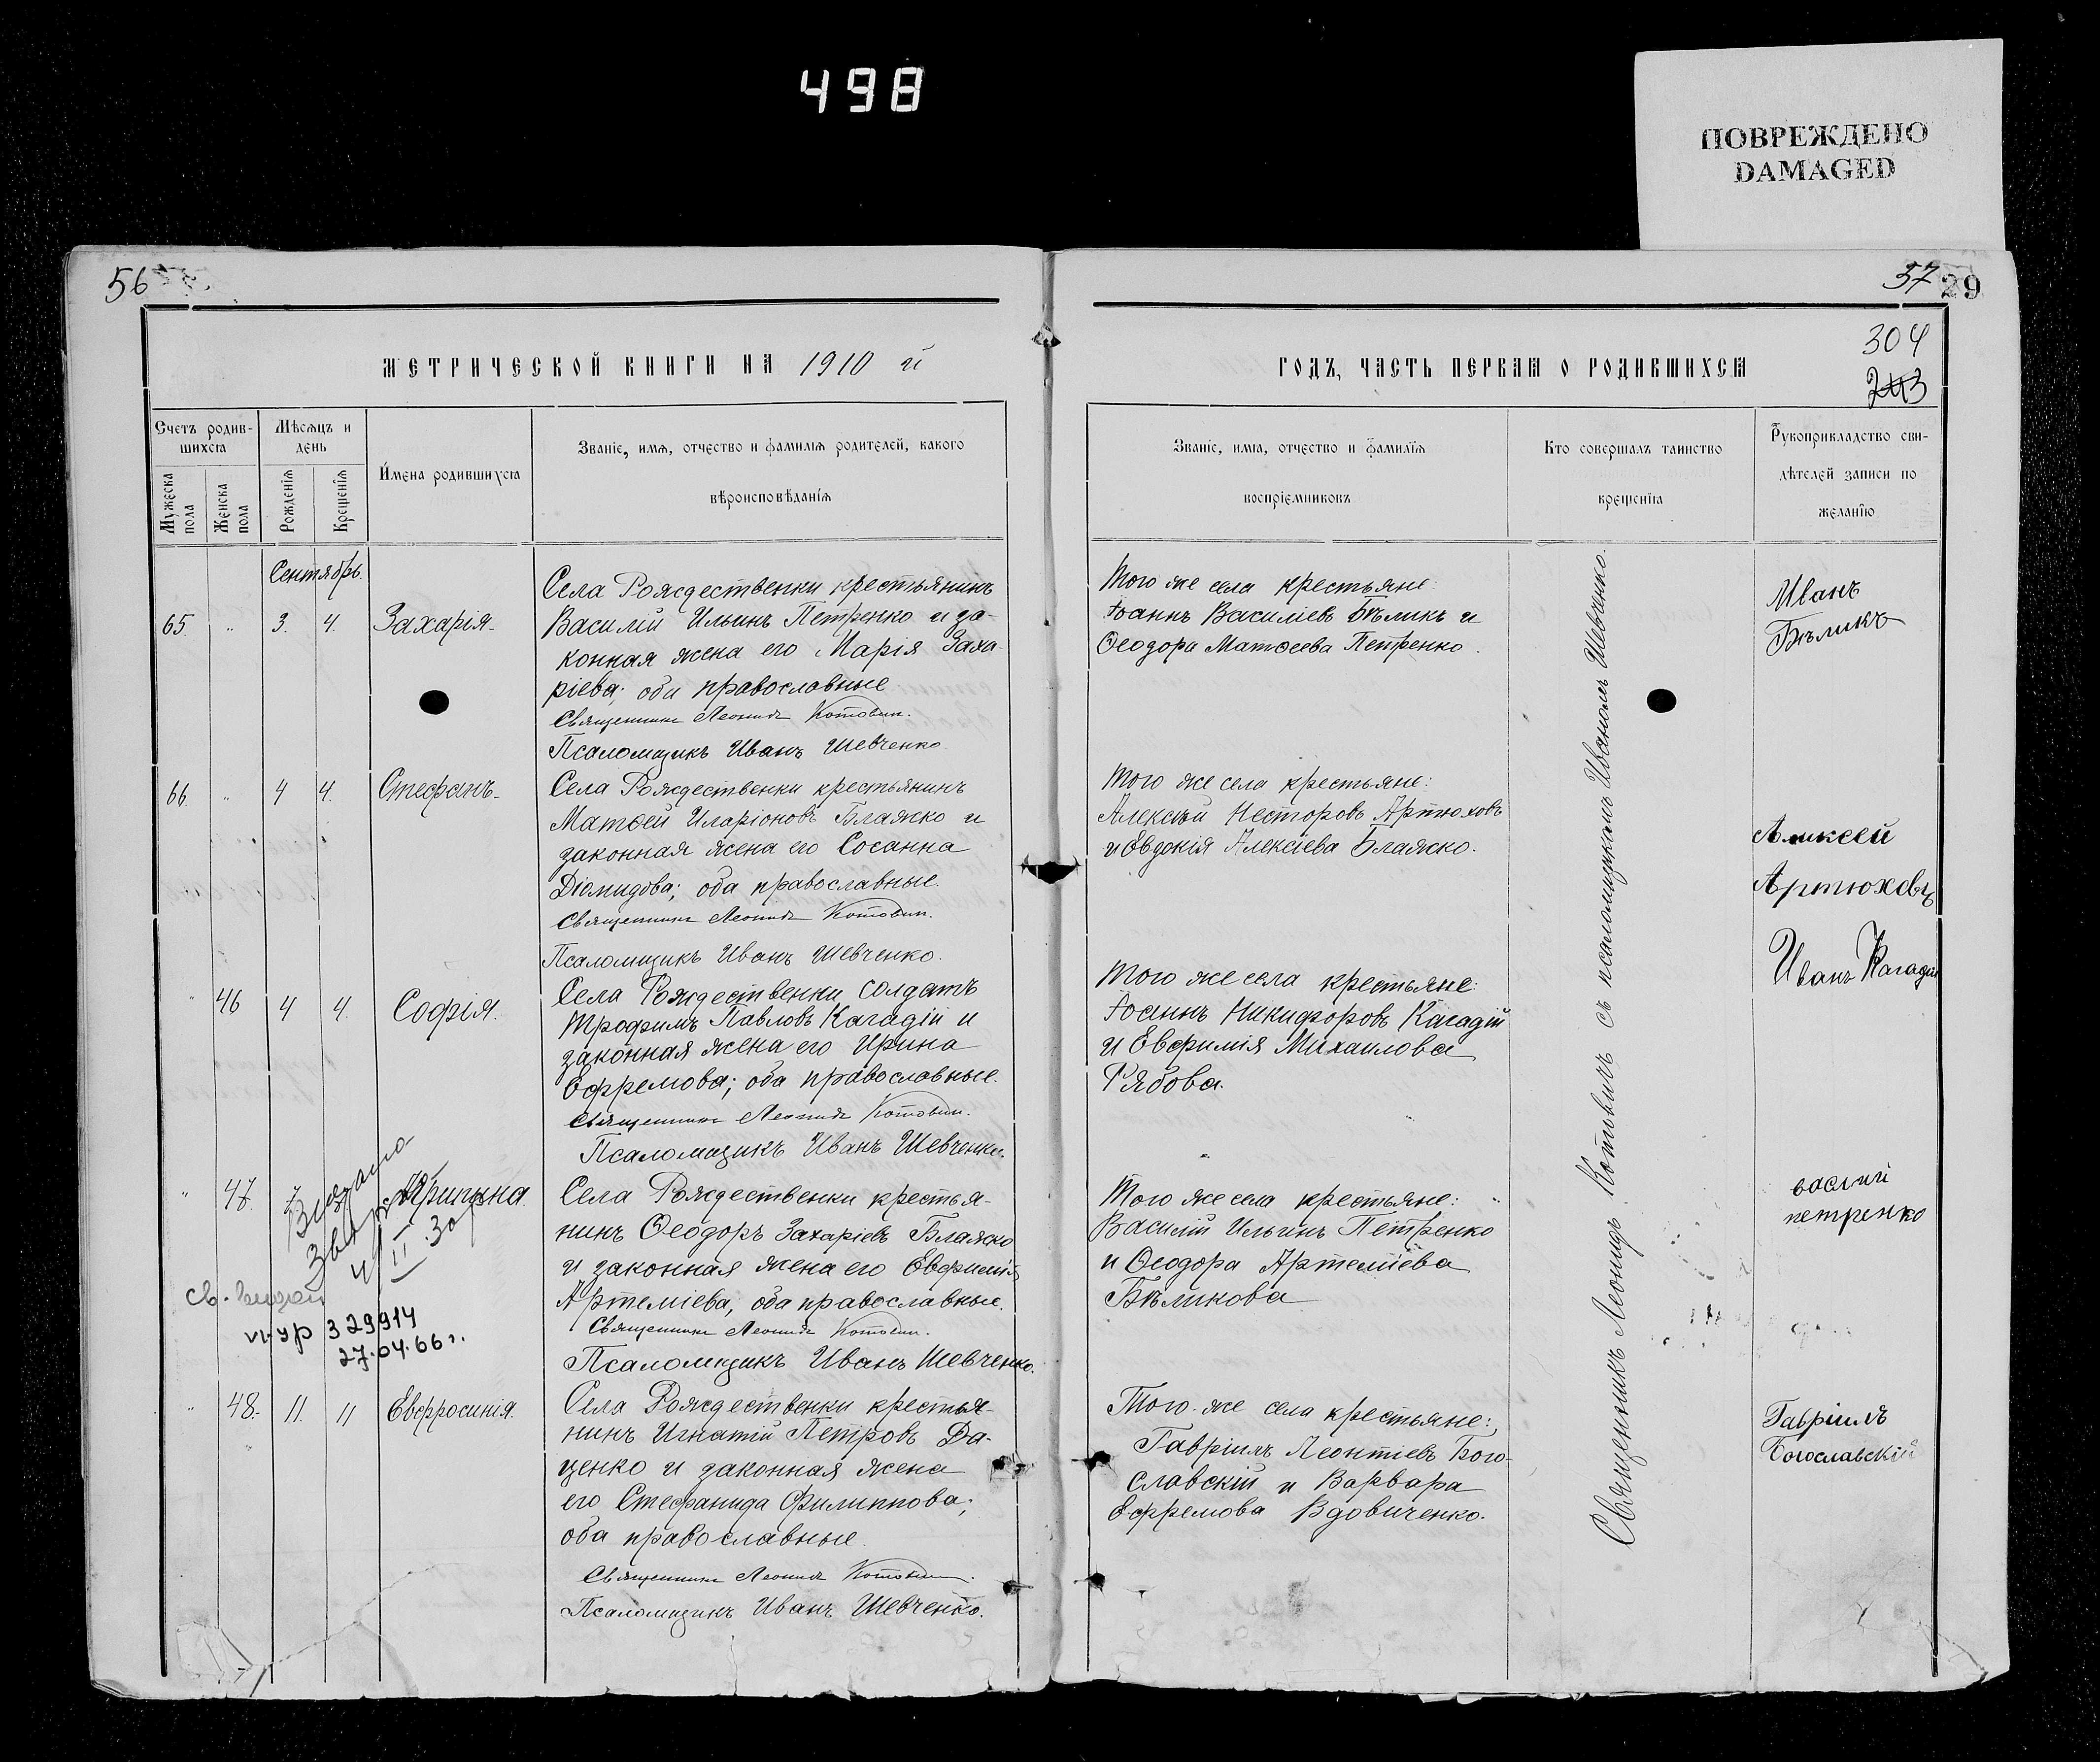 498
ПОВРЕЖДЕНО
DAMAGED
56
57
29
304
243
МЕТРИЧЕСКОЙ КНИГИ НА 1910 й
ГОДЪ, ЧАСТЬ ПЕРВАЯ О РОДИВШИХСЯ
Счетъ родив-
шихся
Мужеска
пола
Женска
пола
Мѣсяцъ и
день
Рожденія
Крещенія
Имена родившихся
Званіе, имя, отчество и фамилія родителей, какого
вѣроисповѣданія
Званіе, имя, отчество и фамилія
воспріемниковъ
Кто совершалъ таинство
крещенія
Рукоприкладство сви-
дѣтелей записи по
желанію
Сентябрь.
65. " 3. 4. Захарія.
Села Рождественки крестьянинъ
Василій Ильинъ Петренко и за-
конная жена его Марія Заха-
ріева; оба православные
Священникъ Леонидъ Котовичъ.
Псаломщикъ Иванъ Шевченко
Того же села крестьяне:
Іоаннъ Василіевъ Бѣликъ и
Ѳеодора Матѳеева Петренко.
Иванъ
Бѣликъ
66. " 4 4. Стефанъ.
Села Рождественки крестьянинъ
Матѳей Иларіоновъ Блажко и
законная жена его Сосанна
Діомидова; оба православные.
Священникъ Леонидъ Котовичъ.
Псаломщикъ Иванъ Шевченко.
Того же села крестьяне:
Алексѣй Несторовъ Артюховъ
и Евдокія Алексіева Блажко.
Аликсей
Артюховъ
" 46 4 4. Софія.
Села Рождественки солдатъ
Трофимъ Павловъ Кагадій и
законная жена его Ирина
Ефремова; оба православные.
Священникъ Леонидъ Котовичъ.
Псаломщикъ Иванъ Шевченко.
Того же села крестьяне:
Іоаннъ Никифоровъ Кагадій
и Евфимія Михаилова
Рябова.
Иванъ Кагадій
" 47. 7
Села Рождественки крестья-
нинъ Ѳеодоръ Захаріевъ Блажко
и законная жена его Евфимія
Артеміева, оба православные.
Священникъ Леонидъ Котовичъ.
Псаломщикъ Иванъ Шевченко.
4/II.30
329914
27.04.66 г.
Того же села крестьяне:
Василій Ильинъ Петренко
и Ѳеодора Артеміева
Бѣликова
василий
петренко
" 48. 11. 11 Евфросинія.
Села Рождественки крестья-
нинъ Игнатій Петровъ Да-
ценко и законная жена
его Стефанида Филиппова;
оба православные.
Священникъ Леонидъ Котовичъ.
Псаломщикъ Иванъ Шевченко.
Того же села крестьяне:
Гавріилъ Леонтіевъ Бого-
славскій и Варвара
Ефремова Вдовиченко.
Гавріилъ
Богославскій
Священникъ Леонидъ Котовичъ съ псаломщикомъ Иваномъ Шевченко.